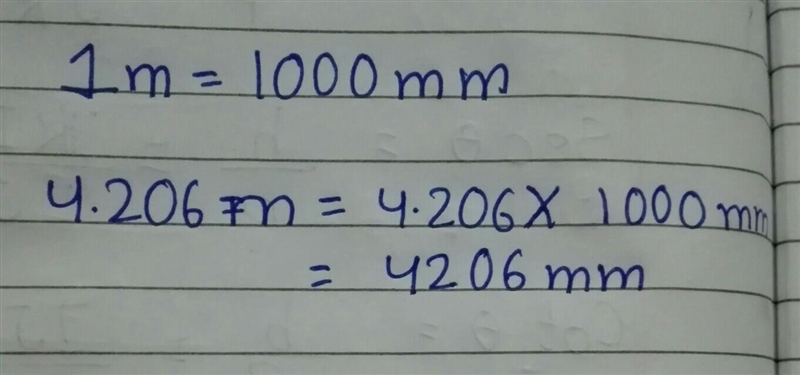 1m = 1000mm
4.206m = 4.206 X 1000mm
= 4206mm